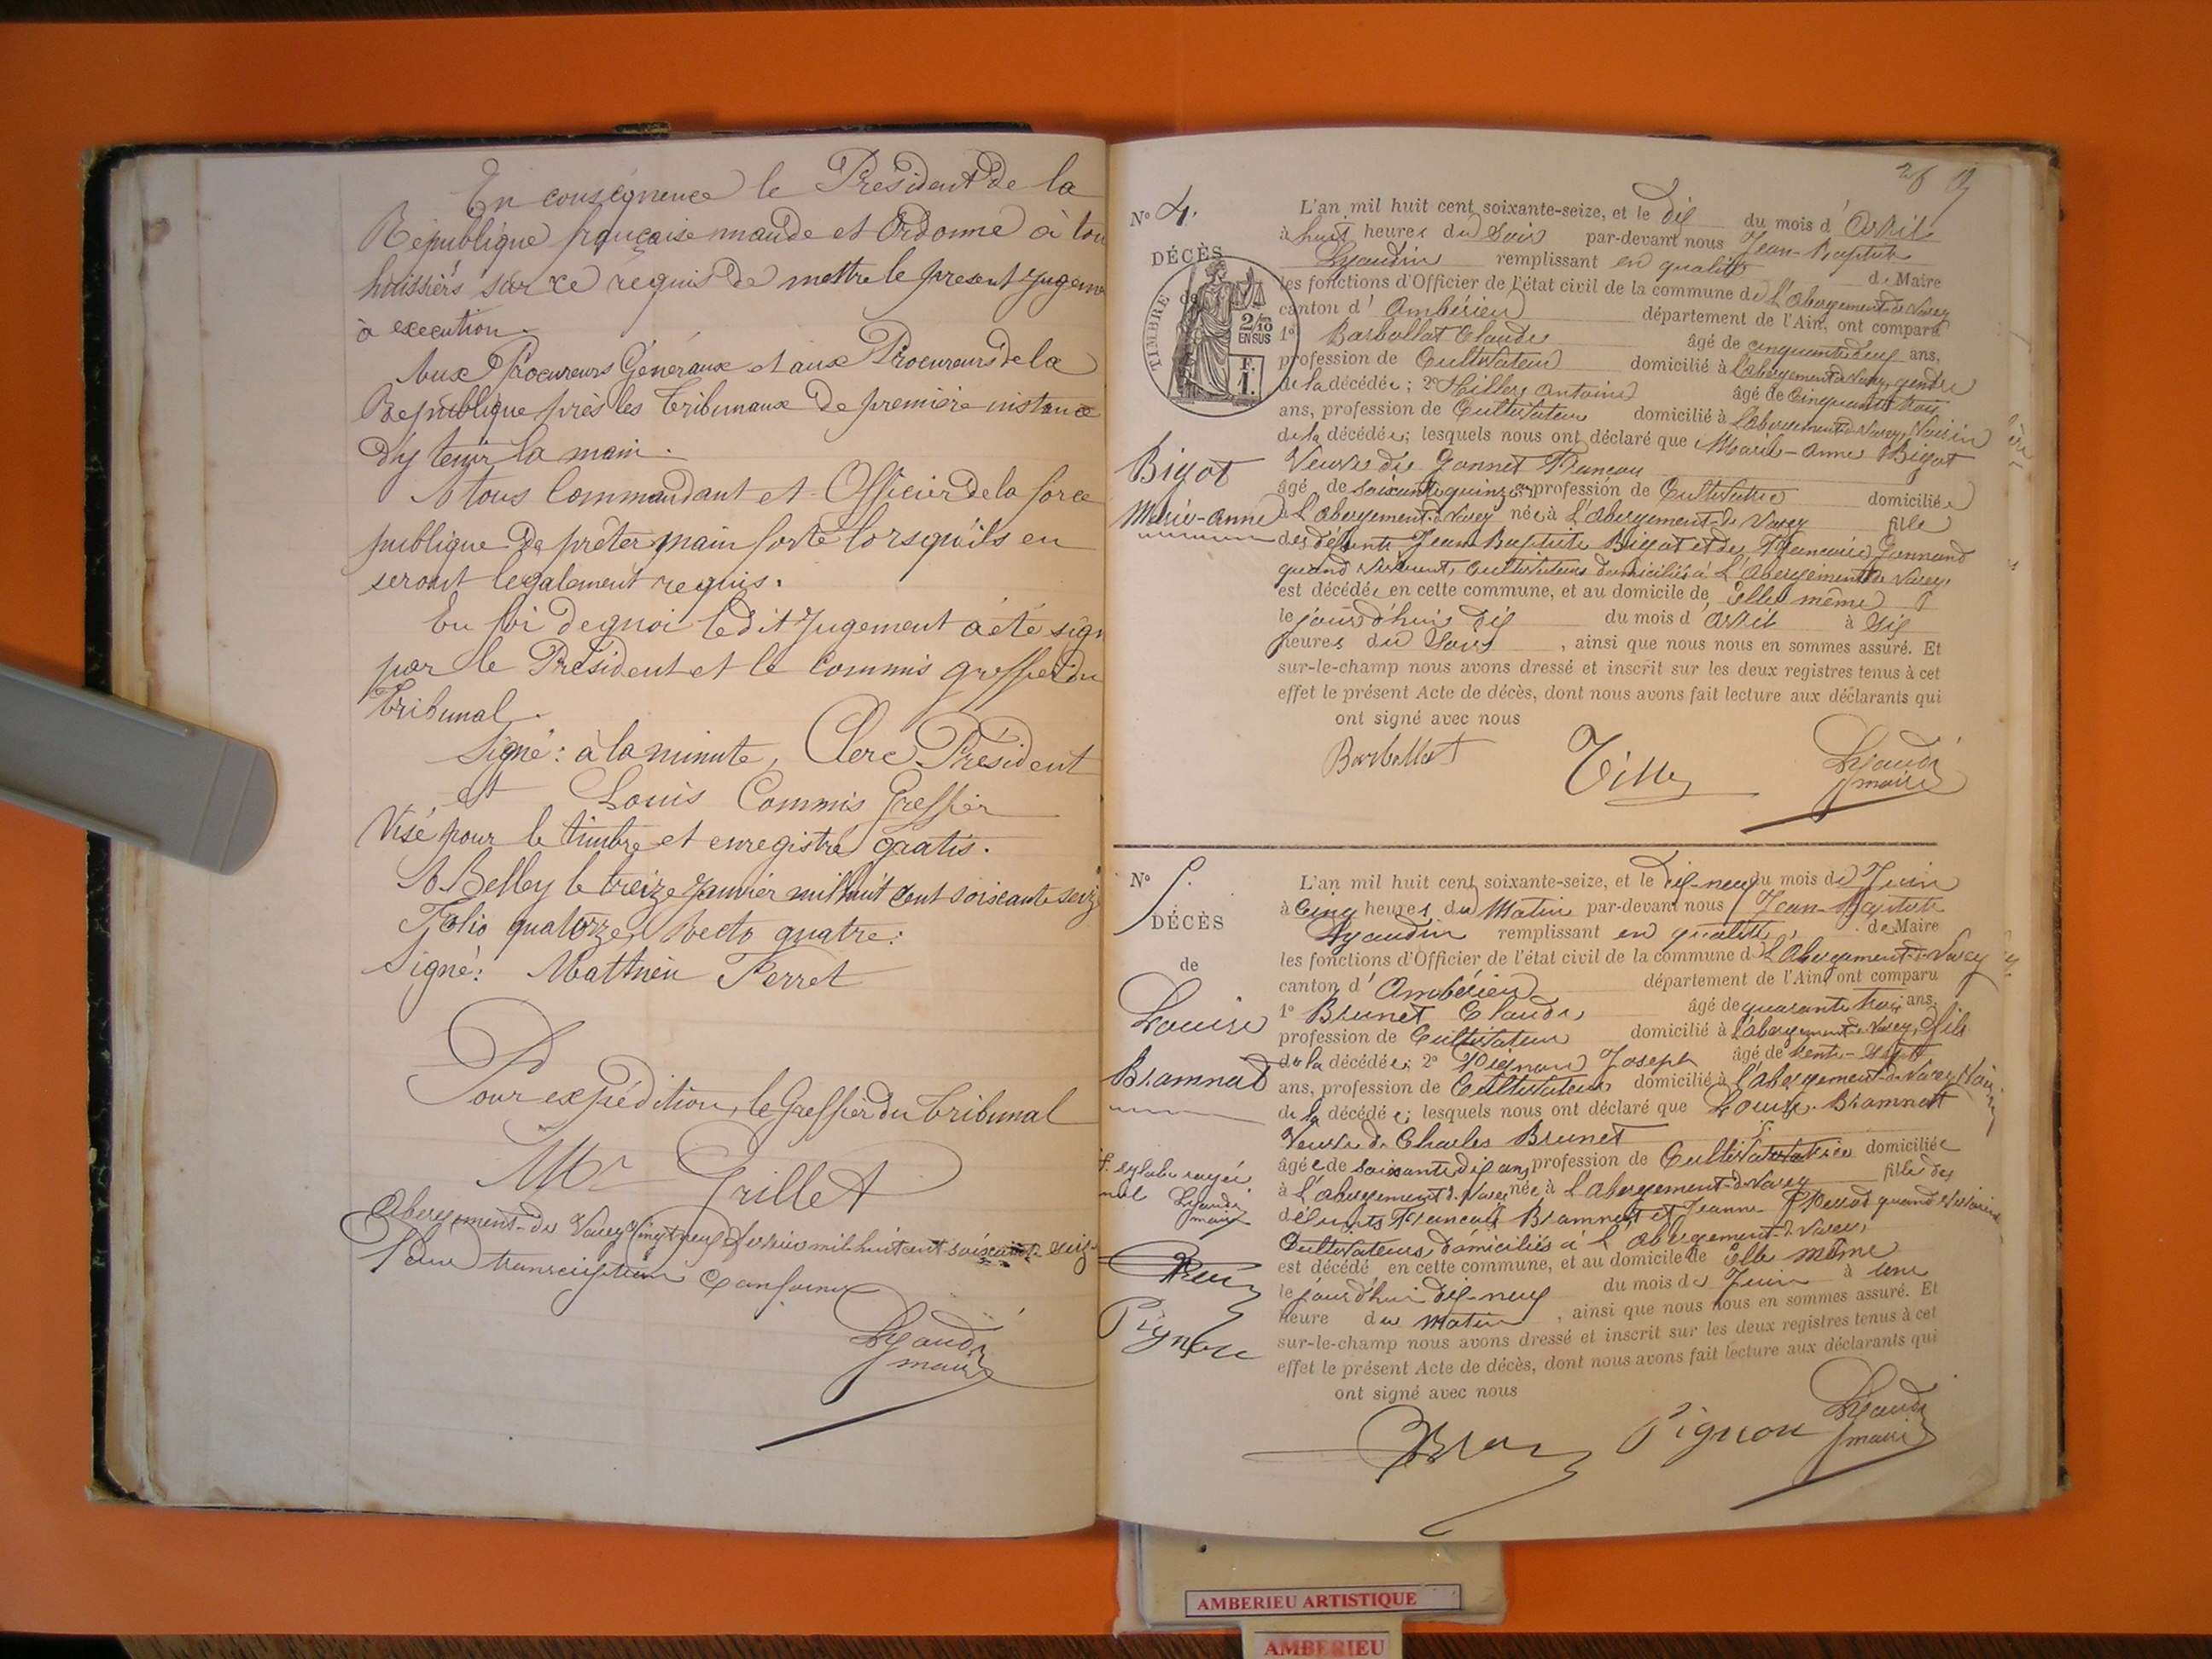 En conséquence le Président de la
République française mande et Ordonne à tou
huissiers sur ce requis de mettre le present jugeme
à execution.
Aux Procureurs Généraux et aux Procureurs de la
République près les Tribunaux de première instance
d'y tenir la main.
A tous Commandant et Officier de la force
publique de prêter main forte lorsqu'ils en
seront legalement requis.
En foi de quoi ledit Jugement a été sign
par le Président et le Commis greffier du
Tribunal.
Signé: à la minute, Clerc Président
et Louis Commis Greffier
Visé pour le timbre et enregistré gratis.
A Belley le treize Janvier mil huit cent soixante seize
Folio quatorze, Recto quatre:
Signé: Matthieu Perret
Pour expédition, le Greffier du Tribunal
Mr Grillet
Abergement-de Varey Vingt neuf Fevrier mil-huit cent soixante seize
Pour transcription Conforme
maire
N° 4.
DÉCÈS
de
TIMBRE
2/10
EN SUS
F.
1.
Bigot
Marie-Anne
L'an mil huit cent soixante-seize, et le Dix du mois d' Avril
à huit heures du Soir par-devant nous Jean-Baptiste
remplissant en qualité de Maire
les fonctions d'Officier de l'état civil de la commune de L'abergement-de Varey
canton d' Ambérieu département de l'Ain, ont comparu
1° Barbollat Claude âgé de cinquante deux ans,
profession de Cultivateur domicilié à l'abergement de Varey, gendre
de la décédée; 2° Antoine âgé de Cinquante trois
ans, profession de Cultivateur domicilié à l'abergement de Varey, Voisin
de la décédée; lesquels nous ont déclaré que Marie-Anne Bigot
Veuve de François
âgé de soixante quinze ans profession de Cultivatrice domiciliée
à L'abergement-de Varey née à L'abergement-de Varey fille
des défunts Jean Baptiste Bigot et de Françoise
quand vivaient, Cultivateurs domiciliés à L'Abergement de Varey,
est décédée en cette commune, et au domicile de Elle même
le jourd'hui dix du mois d' Avril à Six
heures du Soir, ainsi que nous nous en sommes assuré. Et
sur-le-champ nous avons dressé et inscrit sur les deux registres tenus à cet
effet le présent Acte de décès, dont nous avons fait lecture aux déclarants qui
ont signé avec nous
Barbollat
maire
N° 5.
DÉCÈS
de
Louise
L'an mil huit cent soixante-seize, et le dix-neuf du mois de Juin
à Cinq heures du Matin par-devant nous Jean-Baptiste
remplissant en qualité de Maire
les fonctions d'Officier de l'état civil de la commune de L'abergement-de-Varey
canton d' Ambérieu département de l'Ain, ont comparu
1° Brunet Claude âgé de quarante trois ans,
profession de Cultivateur domicilié à l'abergement-de Varey, fils
de la décédée; 2° Joseph âgé de trente-Sept
ans, profession de Cultivateur domicilié à l'abergement-de Varey
de la décédée; lesquels nous ont déclaré que Louise
Veuve de Charles Brunet
âgée de soixante dix ans profession de domiciliée
à L'abergement-de Varey née à L'abergement-de Varey fille des
défunts François et Jeanne quand vivaient
Cultivateurs domiciliés à L'abergement-de Varey,
est décédé en cette commune, et au domicile de Elle même
le jourd'hui dix-neuf du mois de Juin à une
heure du Matin, ainsi que nous nous en sommes assuré. Et
sur-le-champ nous avons dressé et inscrit sur les deux registres tenus à cet
effet le présent Acte de décès, dont nous avons fait lecture aux déclarants qui
ont signé avec nous
Pignon
maire
AMBERIEU ARTISTIQUE
AMBERIEU